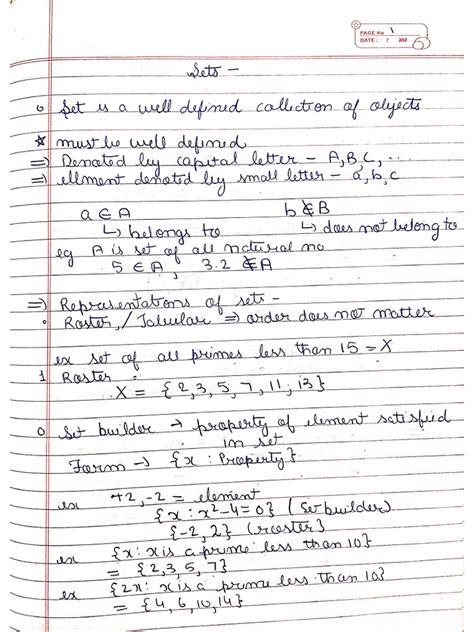 PAGE No. 1
DATE: / 202
Sets -
o Set is a well defined collection of objects
☆ must be well defined
⇒ Denoted by capital letter - A, B, C, ...
⇒ ellment denoted by small letter - a, b, c
a ∈ A b ∉ B
↳ belongs to ↳ does not belong to
eg A is set of all natural no
5 ∈ A, 3.2 ∉ A
⇒ Representations of sets -
• Roster / Tabular ⇒ order does not matter
ex set of all primes less than 15 = X
1 Roster :
X = {2, 3, 5, 7, 11, 13}
o Set builder → property of element satisfied
in set
Form → {x : Property}
ex +2, -2 = element
{x : x²-4=0} (Set builder)
{-2, 2} (roster)
ex {x: x is a prime less than 10}
= {2, 3, 5, 7}
ex {2x: x is a prime less than 10}
= {4, 6, 10, 14}